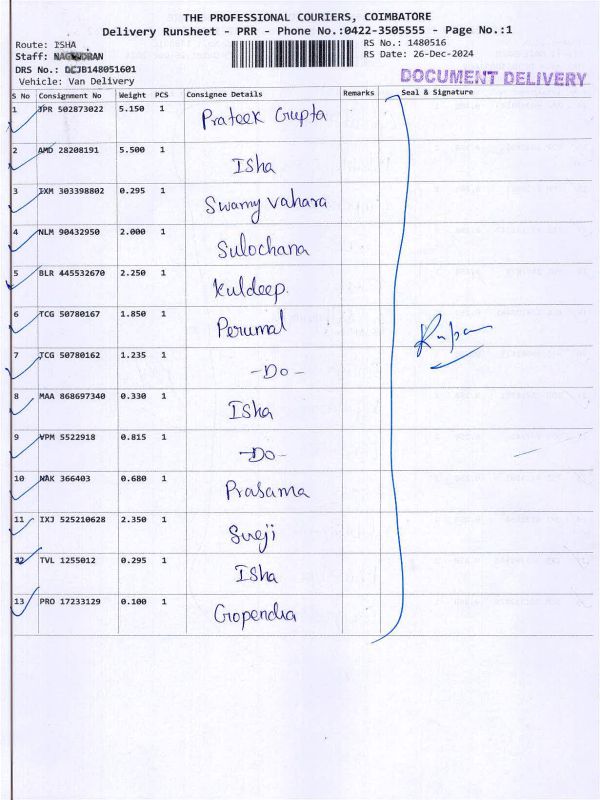 THE PROFESSIONAL COURIERS, COIMBATORE
Delivery Runsheet - PRR - Phone No.:0422-3505555 - Page No.:1
Route: ISHA
RS No.: 1480516
Staff:
RS Date: 26-Dec-2024
DRS No.: DCJB148051601
Vehicle: Van Delivery
DOCUMENT DELIVERY
S No Consignment No Weight PCS Consignee Details Remarks Seal & Signature
1 JPR 502873022 5.150 1 Prateek Gupta
2 AMD 28208191 5.500 1 Isha
3 IXM 303398802 0.295 1 Swamy Vahara
4 NLM 90432950 2.000 1 Sulochana
5 BLR 445532670 2.250 1 Kuldeep.
6 TCG 50780167 1.850 1 Perumal
7 TCG 50780162 1.235 1 -Do-
8 MAA 868697340 0.330 1 Isha
9 VPM 5522918 0.815 1 -Do-
10 NAK 366403 0.680 1 Prasama
11 IXJ 525210628 2.350 1
12 TVL 1255012 0.295 1 Isha
13 PRO 17233129 0.100 1 Gopendra